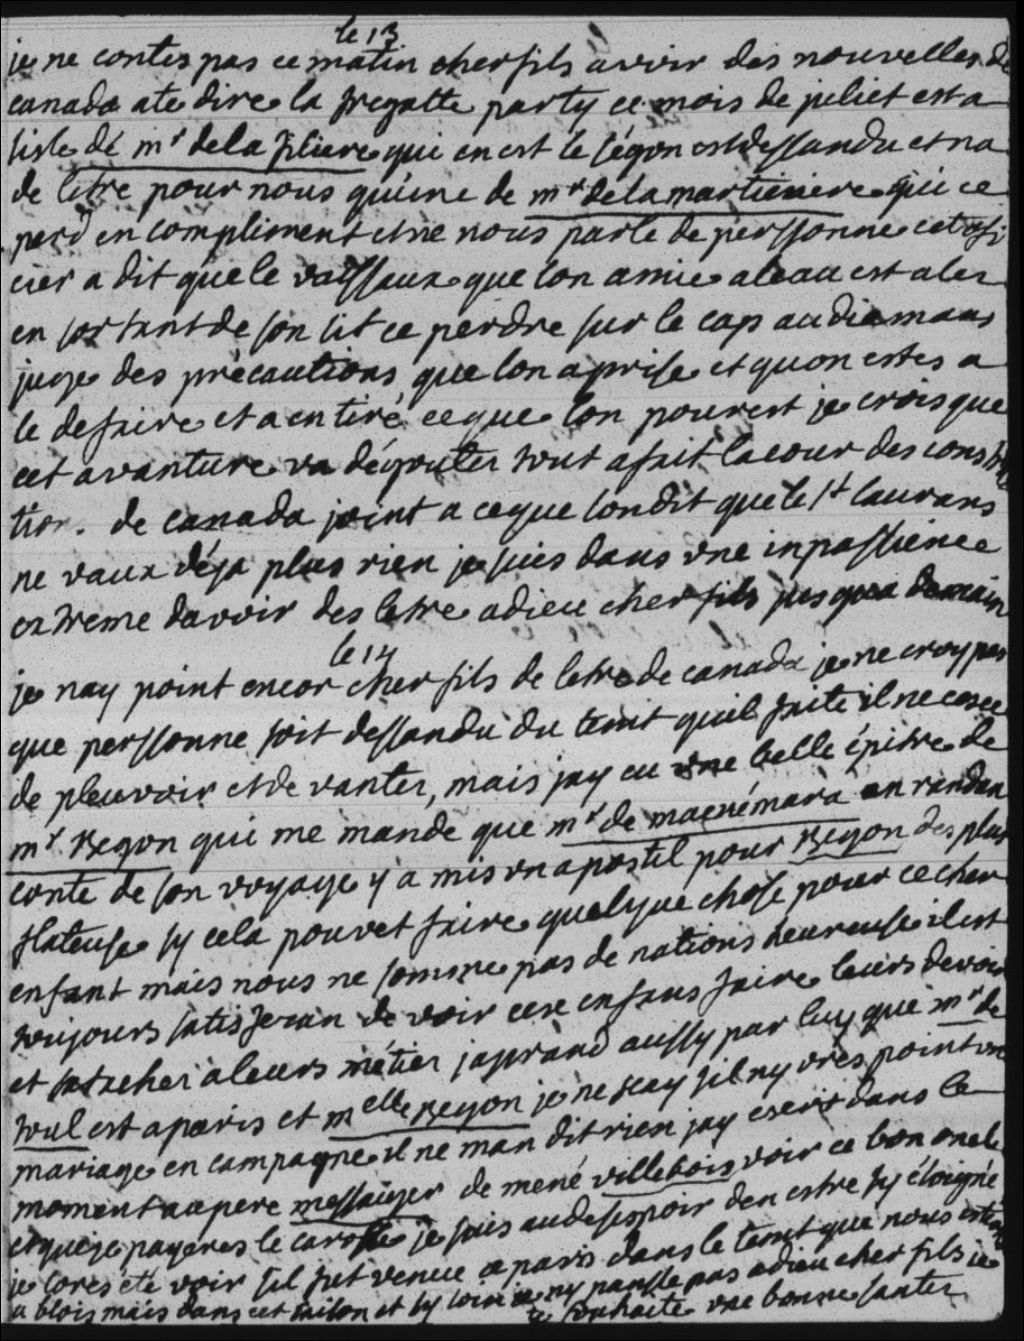 le 13
je ne contes pas ce matin cher fils avoir des nouvelles de
canada a te dire la fregatte party ce mois de juliet est a
lisle de mr de la filiere qui en est le segon est dessandu et na
de letre pour nous quune de mr de la martiniere qui ce
perd en compliment et ne nous parle de personne cet ofi
cier a dit que le vaissaux que lon a mie a leau est aler
en sortant de son lit ce perdre sur le cap au diamans
juge des précautions que lon a prise et quon estes a
le defaire et a en tiré ce que lon pouret je crois que
cet avanture va dégouter tout a fait la cour des constru
tion de canada joint a ce que lon dit que le st laurans
ne vaux déja plus rien je suis dans une inpassience
extreme davoir des letre adieu cher fils jusqua demain
le 14
je nay point encor cher fils de letre de canada je ne croy pas
que personne soit dessandu du temt quil faite il ne cesse
de pleuvoir et de vanter, mais jay eu une belle épitre de
mr Begon qui me mande que mr de macnémara en randan
conte de son voyage y a mis un apostil pour Begon des plus
flateuse sy cela pouvet faire quelque chose pour ce cher
enfant mais nous ne somme pas de nations heureuse il est
toujours satisfecan de voir cere enfans faire leurs devoir
et satacher a leurs métier japrand aussy par luy que mr de
toul est a paris et melle Begon je ne scay sil ny ores point un
mariage en campagne il ne man dit rien jay escrit dans le
moment au pere messaiger de mené villebois voir ce bon oncle
et que je payeres le carosse je suis au desespoir den estre sy éloigné
je lores été voir sil fut venue a paris dans le temt que nous estion
a blois mais dans cet saison et sy loin je ny panse pas adieu cher fils je
te souhaite une bonne santer